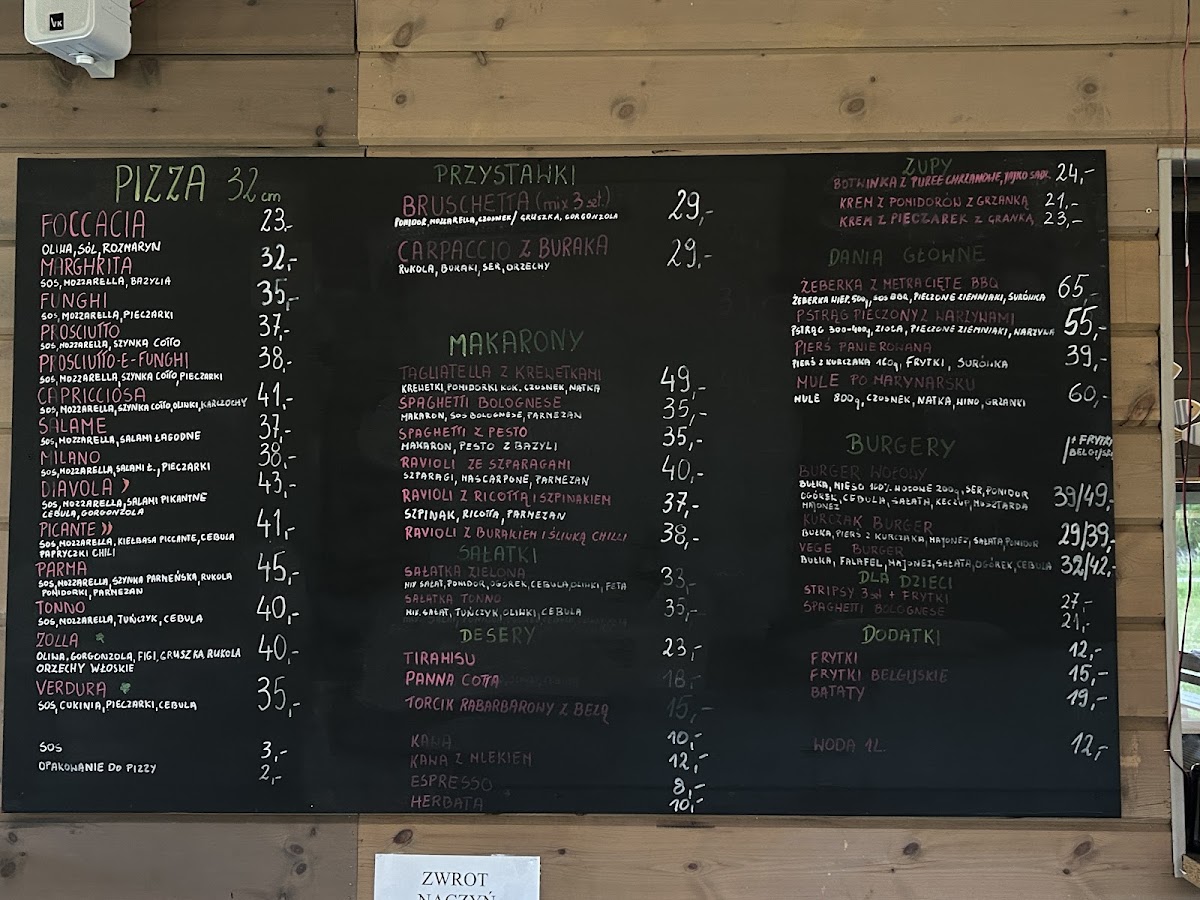 VK
PIZZA 32 cm
FOCCACIA 23,-
OLIWA, SÓL, ROZMARYN
MARGHRITA 32,-
SOS, MOZZARELLA, BAZYLIA
FUNGHI 35,-
SOS, MOZZARELLA, PIECZARKI
PROSCIUTTO 37,-
SOS, MOZZARELLA, SZYNKA COTTO
PROSCIUTTO-E-FUNGHI 38,-
SOS, MOZZARELLA, SZYNKA COTTO, PIECZARKI
CAPRICCIOSA 41,-
SOS, MOZZARELLA, SZYNKA COTTO, OLIWKI, KARCZOCHY
SALAME 37,-
SOS, MOZZARELLA, SALAMI ŁAGODNE
MILANO 38,-
SOS, MOZZARELLA, SALAMI Ł., PIECZARKI
DIAVOLA 43,-
SOS, MOZZARELLA, SALAMI PIKANTNE
CEBULA, GORGONZOLA
PICANTE 41,-
SOS, MOZZARELLA, KIEŁBASA PICCANTE, CEBULA
PAPRYCZKI CHILI
PARMA 45,-
SOS, MOZZARELLA, SZYNKA PARMEŃSKA, RUKOLA
POMIDORKI, PARMEZAN
TONNO 40,-
SOS, MOZZARELLA, TUŃCZYK, CEBULA
ZOLLA 40,-
OLIWA, GORGONZOLA, FIGI, GRUSZKA, RUKOLA
ORZECHY WŁOSKIE
VERDURA 35,-
SOS, CUKINIA, PIECZARKI, CEBULA
SOS 3,-
OPAKOWANIE DO PIZZY 2,-
PRZYSTAWKI
BRUSCHETTA (mix 3 szt.) 29,-
POMIDOR, MOZZARELLA, CZOSNEK / GRUSZKA, GORGONZOLA
CARPACCIO Z BURAKA 29,-
RUKOLA, BURAKI, SER, ORZECHY
MAKARONY
TAGLIATELLA Z KREWETKAMI 49,-
KREWETKI, POMIDORKI KOK. CZOSNEK, NATKA
SPAGHETTI BOLOGNESE 35,-
MAKARON, SOS BOLOGNESE, PARMEZAN
SPAGHETTI Z PESTO 35,-
MAKARON, PESTO Z BAZYLI
RAVIOLI ZE SZPARAGAMI 40,-
SZPARAGI, MASCARPONE, PARMEZAN
RAVIOLI Z RICOTTĄ I SZPINAKIEM 37,-
SZPINAK, RICOTTA, PARMEZAN
RAVIOLI Z BURAKIEM I ŚLIWKĄ CHILLI 38,-
SAŁATKI
SAŁATKA ZIELONA 33,-
MIX SAŁAT, POMIDOR, OGÓREK, CEBULA, OLIWKI, FETA
SAŁATKA TONNO 35,-
MIX. SAŁAT, TUŃCZYK, OLIWKI, CEBULA
DESERY
TIRAMISU 23,-
PANNA COTTA 18,-
TORCIK RABARBAROWY Z BEZĄ 15,-
KAWA 10,-
KAWA Z MLEKIEM 12,-
ESPRESSO 8,-
HERBATA 10,-
ZUPY
BOTWINKA Z PUREE CHRZANOWE, JAJKO SADZ. 24,-
KREM Z POMIDORÓW Z GRZANKĄ 21,-
KREM Z PIECZAREK Z GRANKĄ 23,-
DANIA GŁÓWNE
ŻEBERKA Z METRA CIĘTE BBQ 65,-
ŻEBERKA WIEP. 500g, SOS BBQ, PIECZONE ZIEMNIAKI, SURÓWKA
PSTRĄG PIECZONY Z WARZYWAMI 55,-
PSTRĄG 300-400g, ZIOŁA, PIECZONE ZIEMNIAKI, WARZYWA
PIERŚ PANIEROWANA 39,-
PIERŚ Z KURCZAKA 160g, FRYTKI, SURÓWKA
MULE PO MARYNARSKU 60,-
MULE 800g, CZOSNEK, NATKA, WINO, GRZANKI
BURGERY /+ FRYTKI
BELGIJSKI
BURGER WOŁOWY 39/49,-
BUŁKA, MIĘSO 100% WOŁOWE 200g, SER, POMIDOR
OGÓREK, CEBULA, SAŁATA, KECZUP, MUSZTARDA
MAJONEZ
KURCZAK BURGER 29/39,-
BUŁKA, PIERŚ Z KURCZAKA, MAJONEZ, SAŁATA, POMIDOR
VEGE BURGER 32/42,-
BUŁKA, FALAFEL, MAJONEZ, SAŁATA, OGÓREK, CEBULA
DLA DZIECI
STRIPSY 3szt + FRYTKI 27,-
SPAGHETTI BOLOGNESE 21,-
DODATKI
FRYTKI 12,-
FRYTKI BELGIJSKIE 15,-
BATATY 19,-
WODA 1L. 12,-
ZWROT
NACZYŃ